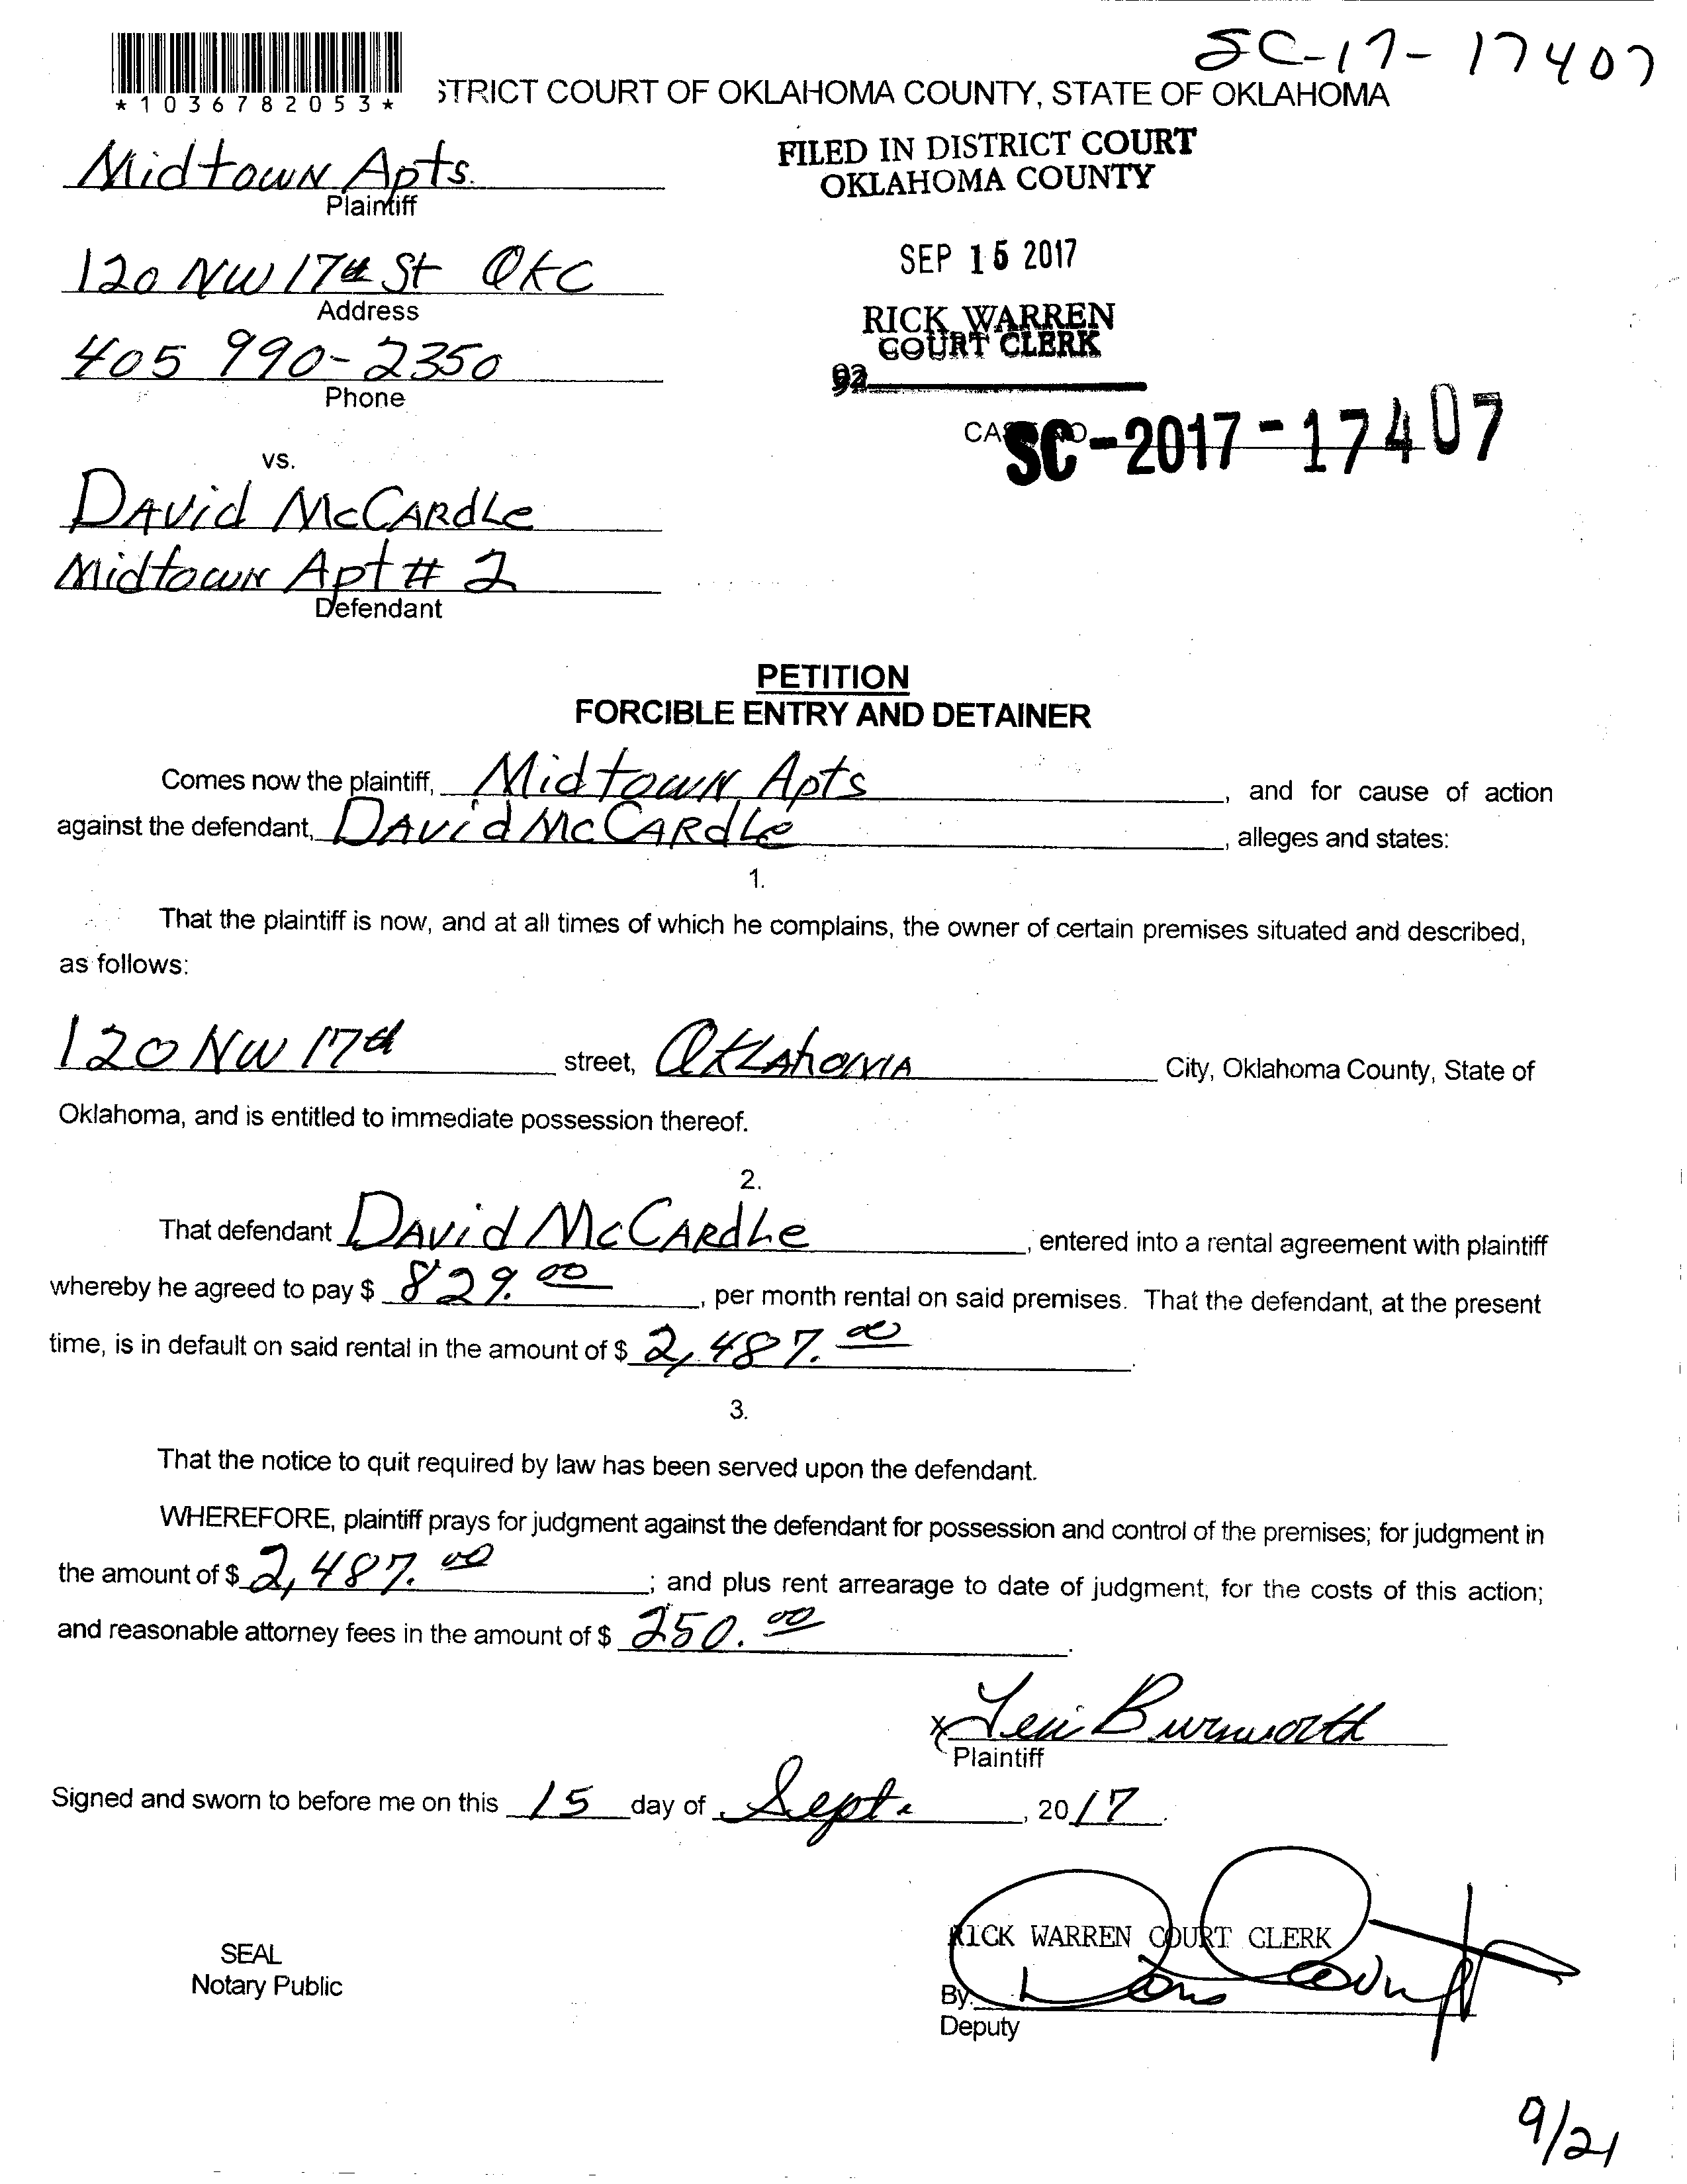 SC-17-17407
*1036782053*
STRICT COURT OF OKLAHOMA COUNTY, STATE OF OKLAHOMA
Midtown Apts.
Plaintiff
FILED IN DISTRICT COURT
OKLAHOMA COUNTY
120 NW 17th St OKC
Address
SEP 15 2017
405 990-2350
Phone
RICK WARREN
COURT CLERK
92
CASE NO
SC-2017-17407
vs.
David McCardle
Midtown Apt # 2
Defendant
PETITION
FORCIBLE ENTRY AND DETAINER
Comes now the plaintiff, Midtown Apts, and for cause of action
against the defendant, David McCardle, alleges and states:
1.
That the plaintiff is now, and at all times of which he complains, the owner of certain premises situated and described,
as follows:
120 NW 17th street, Oklahoma City, Oklahoma County, State of
Oklahoma, and is entitled to immediate possession thereof.
2.
That defendant David McCardle, entered into a rental agreement with plaintiff
whereby he agreed to pay $ 829.00, per month rental on said premises. That the defendant, at the present
time, is in default on said rental in the amount of $ 2,487.00.
3.
That the notice to quit required by law has been served upon the defendant.
WHEREFORE, plaintiff prays for judgment against the defendant for possession and control of the premises; for judgment in
the amount of $ 2,487.00; and plus rent arrearage to date of judgment, for the costs of this action;
and reasonable attorney fees in the amount of $ 250.00.
x Burnworth
Plaintiff
Signed and sworn to before me on this 15 day of Sept., 2017.
RICK WARREN COURT CLERK
SEAL
Notary Public
By
Deputy
9/21